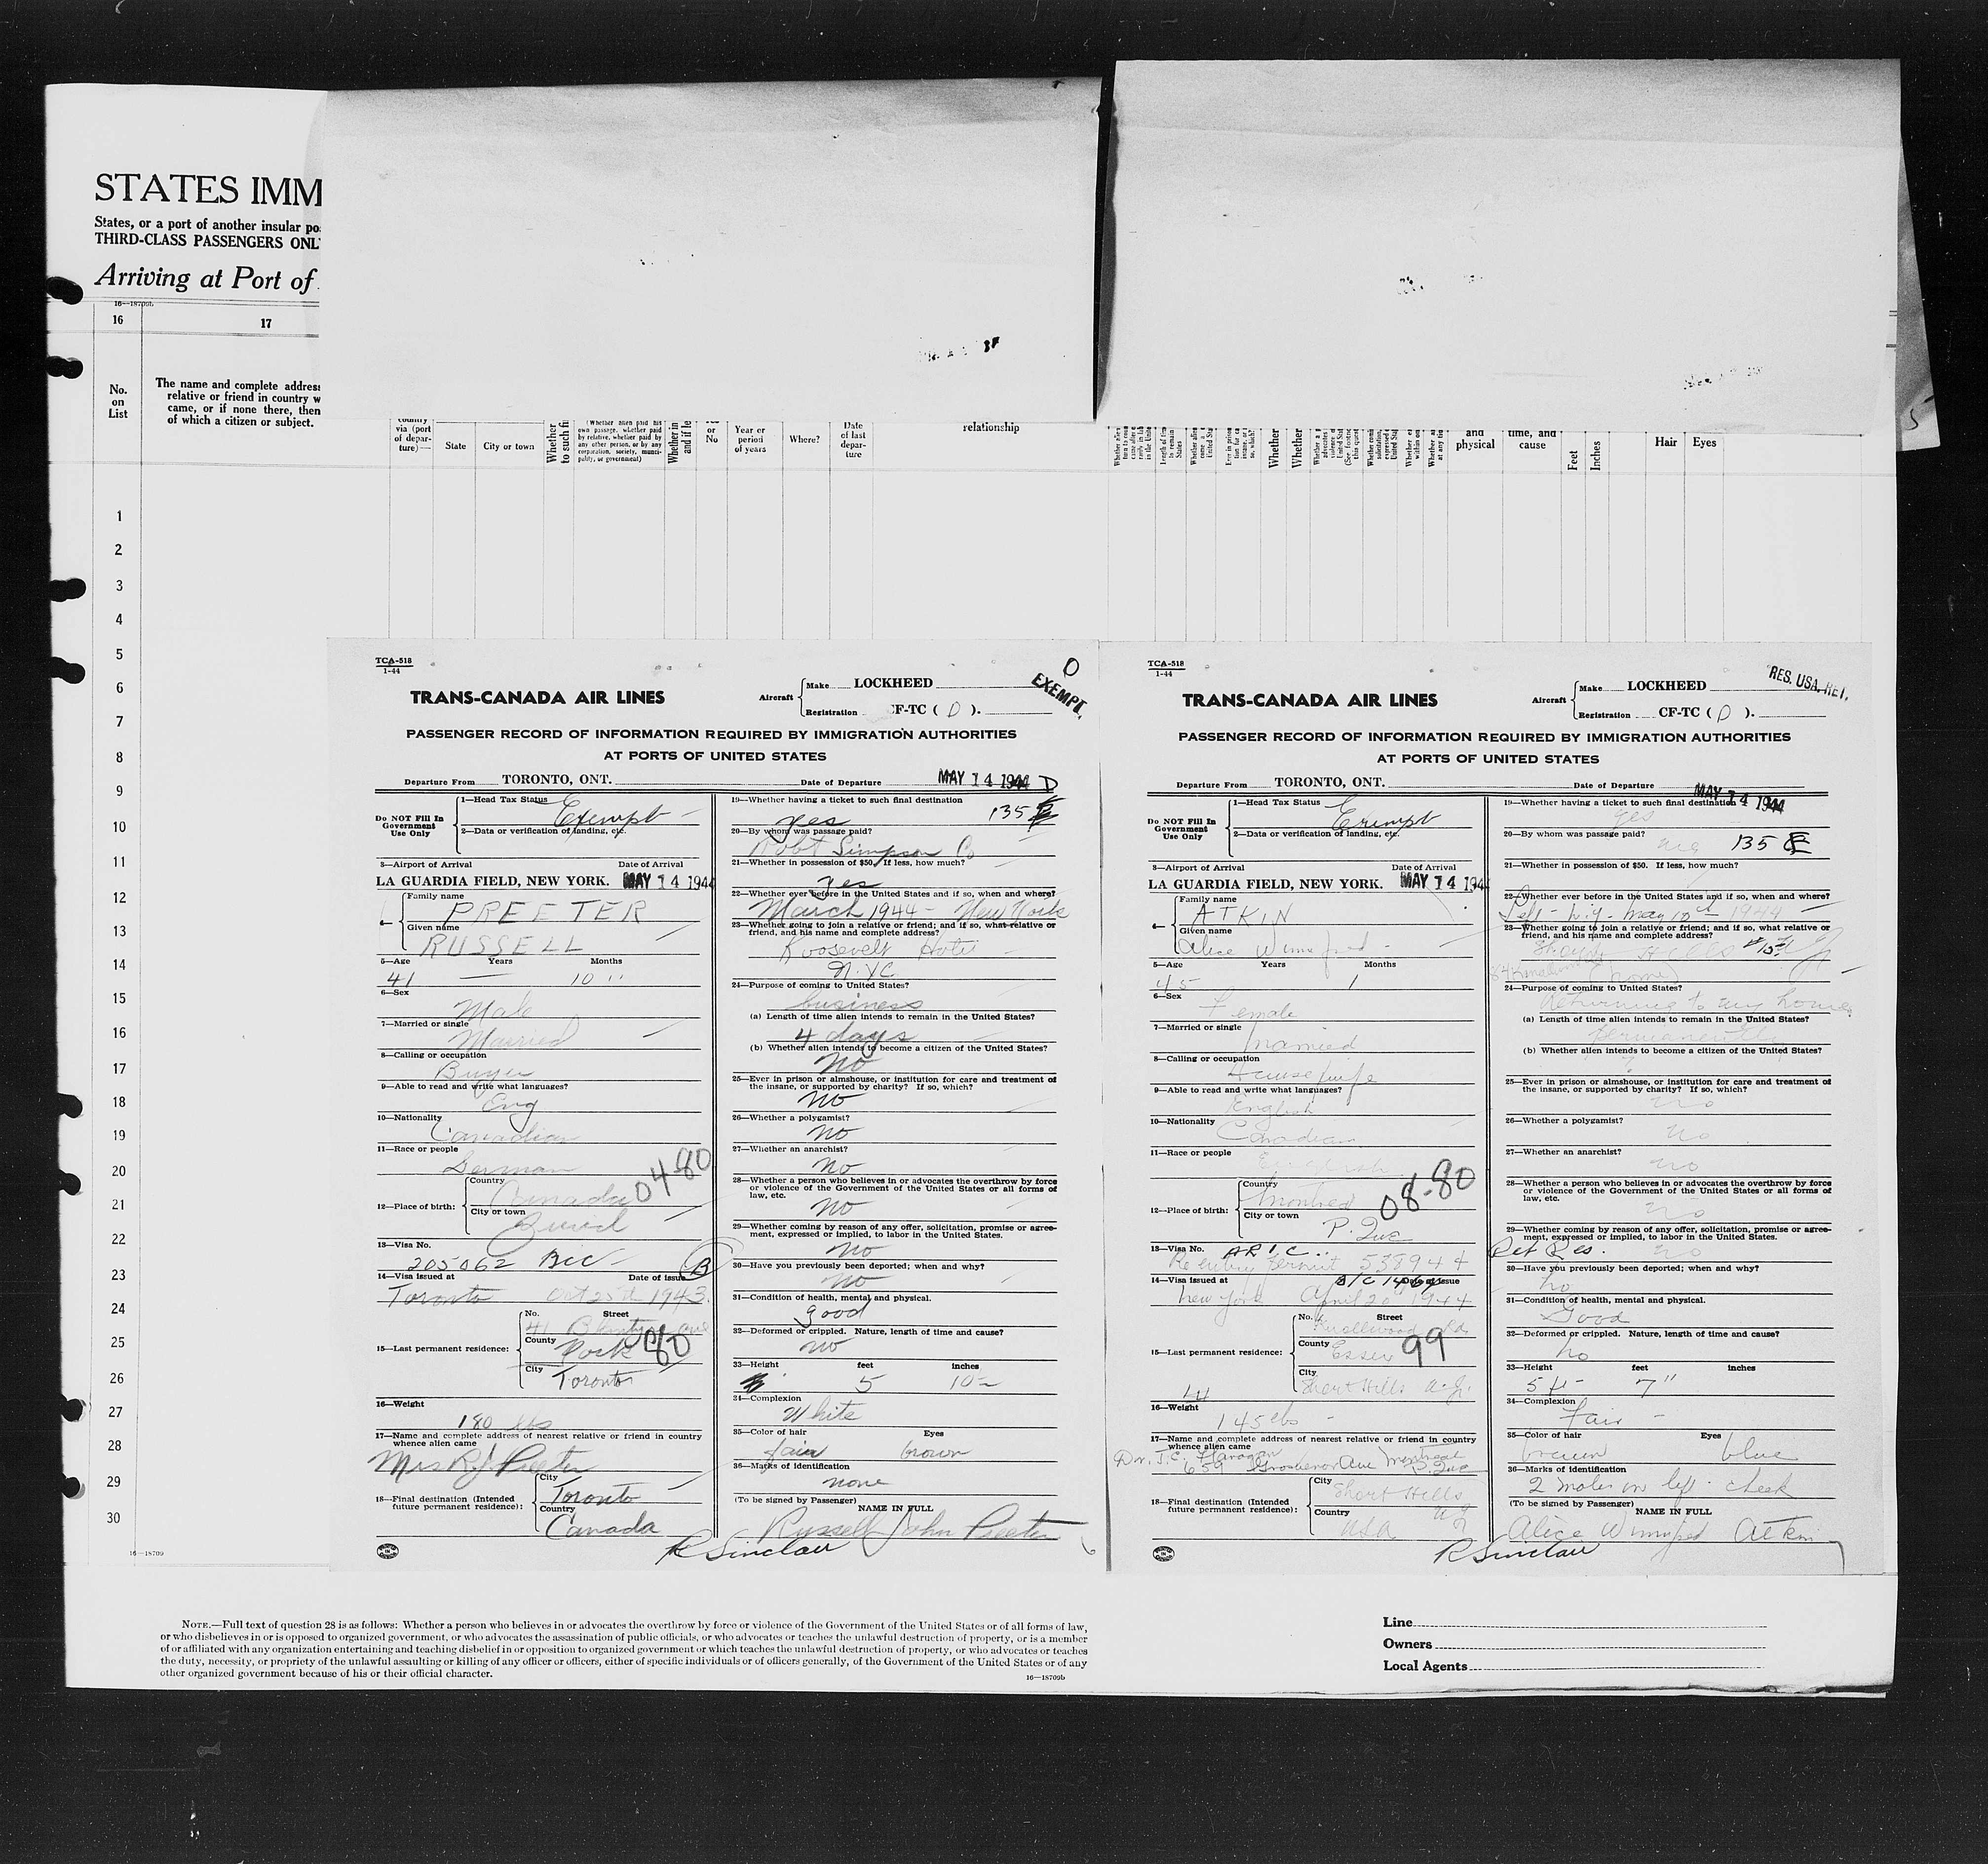 STATES IMM
States, or a port of another insular po
THIRD-CLASS PASSENGERS ONL
Arriving at Port of
16—18709b
16
17
No.
on
List
The name and complete address
relative or friend in country w
came, or if none there, then
of which a citizen or subject.
country
via (port
of depar-
ture)—
State
City or town
Whether
to such fi
(Whether alien paid his
own passage, whether paid
by relative, whether paid by
any other person, or by any
corporation, society, munici-
pality, or government)
Whether in
and if le
or
No
Year or
period
of years
Where?
Date
of last
depar-
ture
relationship
Whether
Whether
and
physical
time, and
cause
Feet
Inches
Hair
Eyes
1
2
3
4
5
6
7
8
9
10
11
12
13
14
15
16
17
18
19
20
21
22
23
24
25
26
27
28
29
30
16—18709
TCA-518
1-44
O
EXEMPT.
TRANS-CANADA AIR LINES
Aircraft
Make LOCKHEED
Registration CF-TC ( D ).
PASSENGER RECORD OF INFORMATION REQUIRED BY IMMIGRATION AUTHORITIES
AT PORTS OF UNITED STATES
Departure From TORONTO, ONT.
Date of Departure MAY 14 1944 D
Do NOT Fill In
Government
Use Only
1—Head Tax Status Exempt
2—Data or verification of landing, etc.
3—Airport of Arrival Date of Arrival
LA GUARDIA FIELD, NEW YORK. MAY 14 1944
4—
Family name
PREETER
Given name
RUSSELL
5—Age Years Months
41 — 10
6—Sex
Male
7—Married or single
Married
8—Calling or occupation
Buyer
9—Able to read and write what languages?
Eng
10—Nationality
Canadian
11—Race or people
German
04-80
12—Place of birth:
Country
Canada
City or town
Zurich
13—Visa No.
205062 BCC B
14—Visa issued at Date of issue
Toronto Oct 25th 1943.
15—Last permanent residence:
No. Street
41
County
York 80
City
Toronto
16—Weight
180 lbs
17—Name and complete address of nearest relative or friend in country
whence alien came
Mrs R.J. Preeter
18—Final destination (Intended
future permanent residence):
City
Toronto
Country
Canada
R Sinclair
19—Whether having a ticket to such final destination
yes 135
20—By whom was passage paid?
Robt Simpson Co
21—Whether in possession of $50. If less, how much?
yes
22—Whether ever before in the United States and if so, when and where?
March 1944 - New York
23—Whether going to join a relative or friend; and if so, what relative or
friend, and his name and complete address?
Roosevelt Hotel
N.YC
24—Purpose of coming to United States?
business
(a) Length of time alien intends to remain in the United States?
4 days
(b) Whether alien intends to become a citizen of the United States?
No
25—Ever in prison or almshouse, or institution for care and treatment of
the insane, or supported by charity? If so, which?
no
26—Whether a polygamist?
no
27—Whether an anarchist?
no
28—Whether a person who believes in or advocates the overthrow by force
or violence of the Government of the United States or all forms of
law, etc.
no
29—Whether coming by reason of any offer, solicitation, promise or agree-
ment, expressed or implied, to labor in the United States.
no
30—Have you previously been deported; when and why?
no
31—Condition of health, mental and physical.
good
32—Deformed or crippled. Nature, length of time and cause?
no
33—Height feet inches
5 10
34—Complexion
White
35—Color of hair Eyes
fair brown
36—Marks of identification
none
(To be signed by Passenger) NAME IN FULL
Russell John Preeter
TCA-518
1-44
RES. USA. RET.
TRANS-CANADA AIR LINES
Aircraft
Make LOCKHEED
Registration CF-TC ( D ).
PASSENGER RECORD OF INFORMATION REQUIRED BY IMMIGRATION AUTHORITIES
AT PORTS OF UNITED STATES
Departure From TORONTO, ONT.
Date of Departure MAY 14 1944
Do NOT Fill In
Government
Use Only
1—Head Tax Status Exempt
2—Data or verification of landing, etc.
3—Airport of Arrival Date of Arrival
LA GUARDIA FIELD, NEW YORK. MAY 14 194
4—
Family name
ATKIN
Given name
Alice Winnifred
5—Age Years Months
45 1
6—Sex
Female
7—Married or single
Married
8—Calling or occupation
Housewife
9—Able to read and write what languages?
English
10—Nationality
Canadian
11—Race or people
English
08-80
12—Place of birth:
Country
Montreal
City or town
P. Que
13—Visa No. A R I C
Re entry Permit 538944
14—Visa issued at Date of issue
New York April 20 1944
15—Last permanent residence:
No. Street
Rd.
County
Essex 99
City
Short Hills N.J.
16—Weight
145 lbs
17—Name and complete address of nearest relative or friend in country
whence alien came
Dr. J.C. Flanagan
659 Grosvenor Ave Montreal P. Que
18—Final destination (Intended
future permanent residence):
City
Short Hills
Country
USA NJ
R Sinclair
19—Whether having a ticket to such final destination
yes
20—By whom was passage paid?
me 135
21—Whether in possession of $50. If less, how much?
22—Whether ever before in the United States and if so, when and where?
Left - N.Y. - May 10th 1944
23—Whether going to join a relative or friend; and if so, what relative or
friend, and his name and complete address?
Short Hills NJ
(home)
24—Purpose of coming to United States?
Returning to my home
(a) Length of time alien intends to remain in the United States?
Permanently
(b) Whether alien intends to become a citizen of the United States?
?
25—Ever in prison or almshouse, or institution for care and treatment of
the insane, or supported by charity? If so, which?
no
26—Whether a polygamist?
no
27—Whether an anarchist?
no
28—Whether a person who believes in or advocates the overthrow by force
or violence of the Government of the United States or all forms of
law, etc.
no
29—Whether coming by reason of any offer, solicitation, promise or agree-
ment, expressed or implied, to labor in the United States.
Ret Res. no
30—Have you previously been deported; when and why?
no
31—Condition of health, mental and physical.
Good
32—Deformed or crippled. Nature, length of time and cause?
no
33—Height feet inches
5 ft - 7"
34—Complexion
Fair -
35—Color of hair Eyes
brown blue
36—Marks of identification
2 moles on left cheek
(To be signed by Passenger) NAME IN FULL
Alice Winnifred Atkin
NOTE.—Full text of question 28 is as follows: Whether a person who believes in or advocates the overthrow by force or violence of the Government of the United States or of all forms of law,
or who disbelieves in or is opposed to organized government, or who advocates the assassination of public officials, or who advocates or teaches the unlawful destruction of property, or is a member
of or affiliated with any organization entertaining and teaching disbelief in or opposition to organized government or which teaches the unlawful destruction of property, or who advocates or teaches
the duty, necessity, or propriety of the unlawful assaulting or killing of any officer or officers, either of specific individuals or of officers generally, of the Government of the United States or of any
other organized government because of his or their official character.
16—18709b
Line
Owners
Local Agents